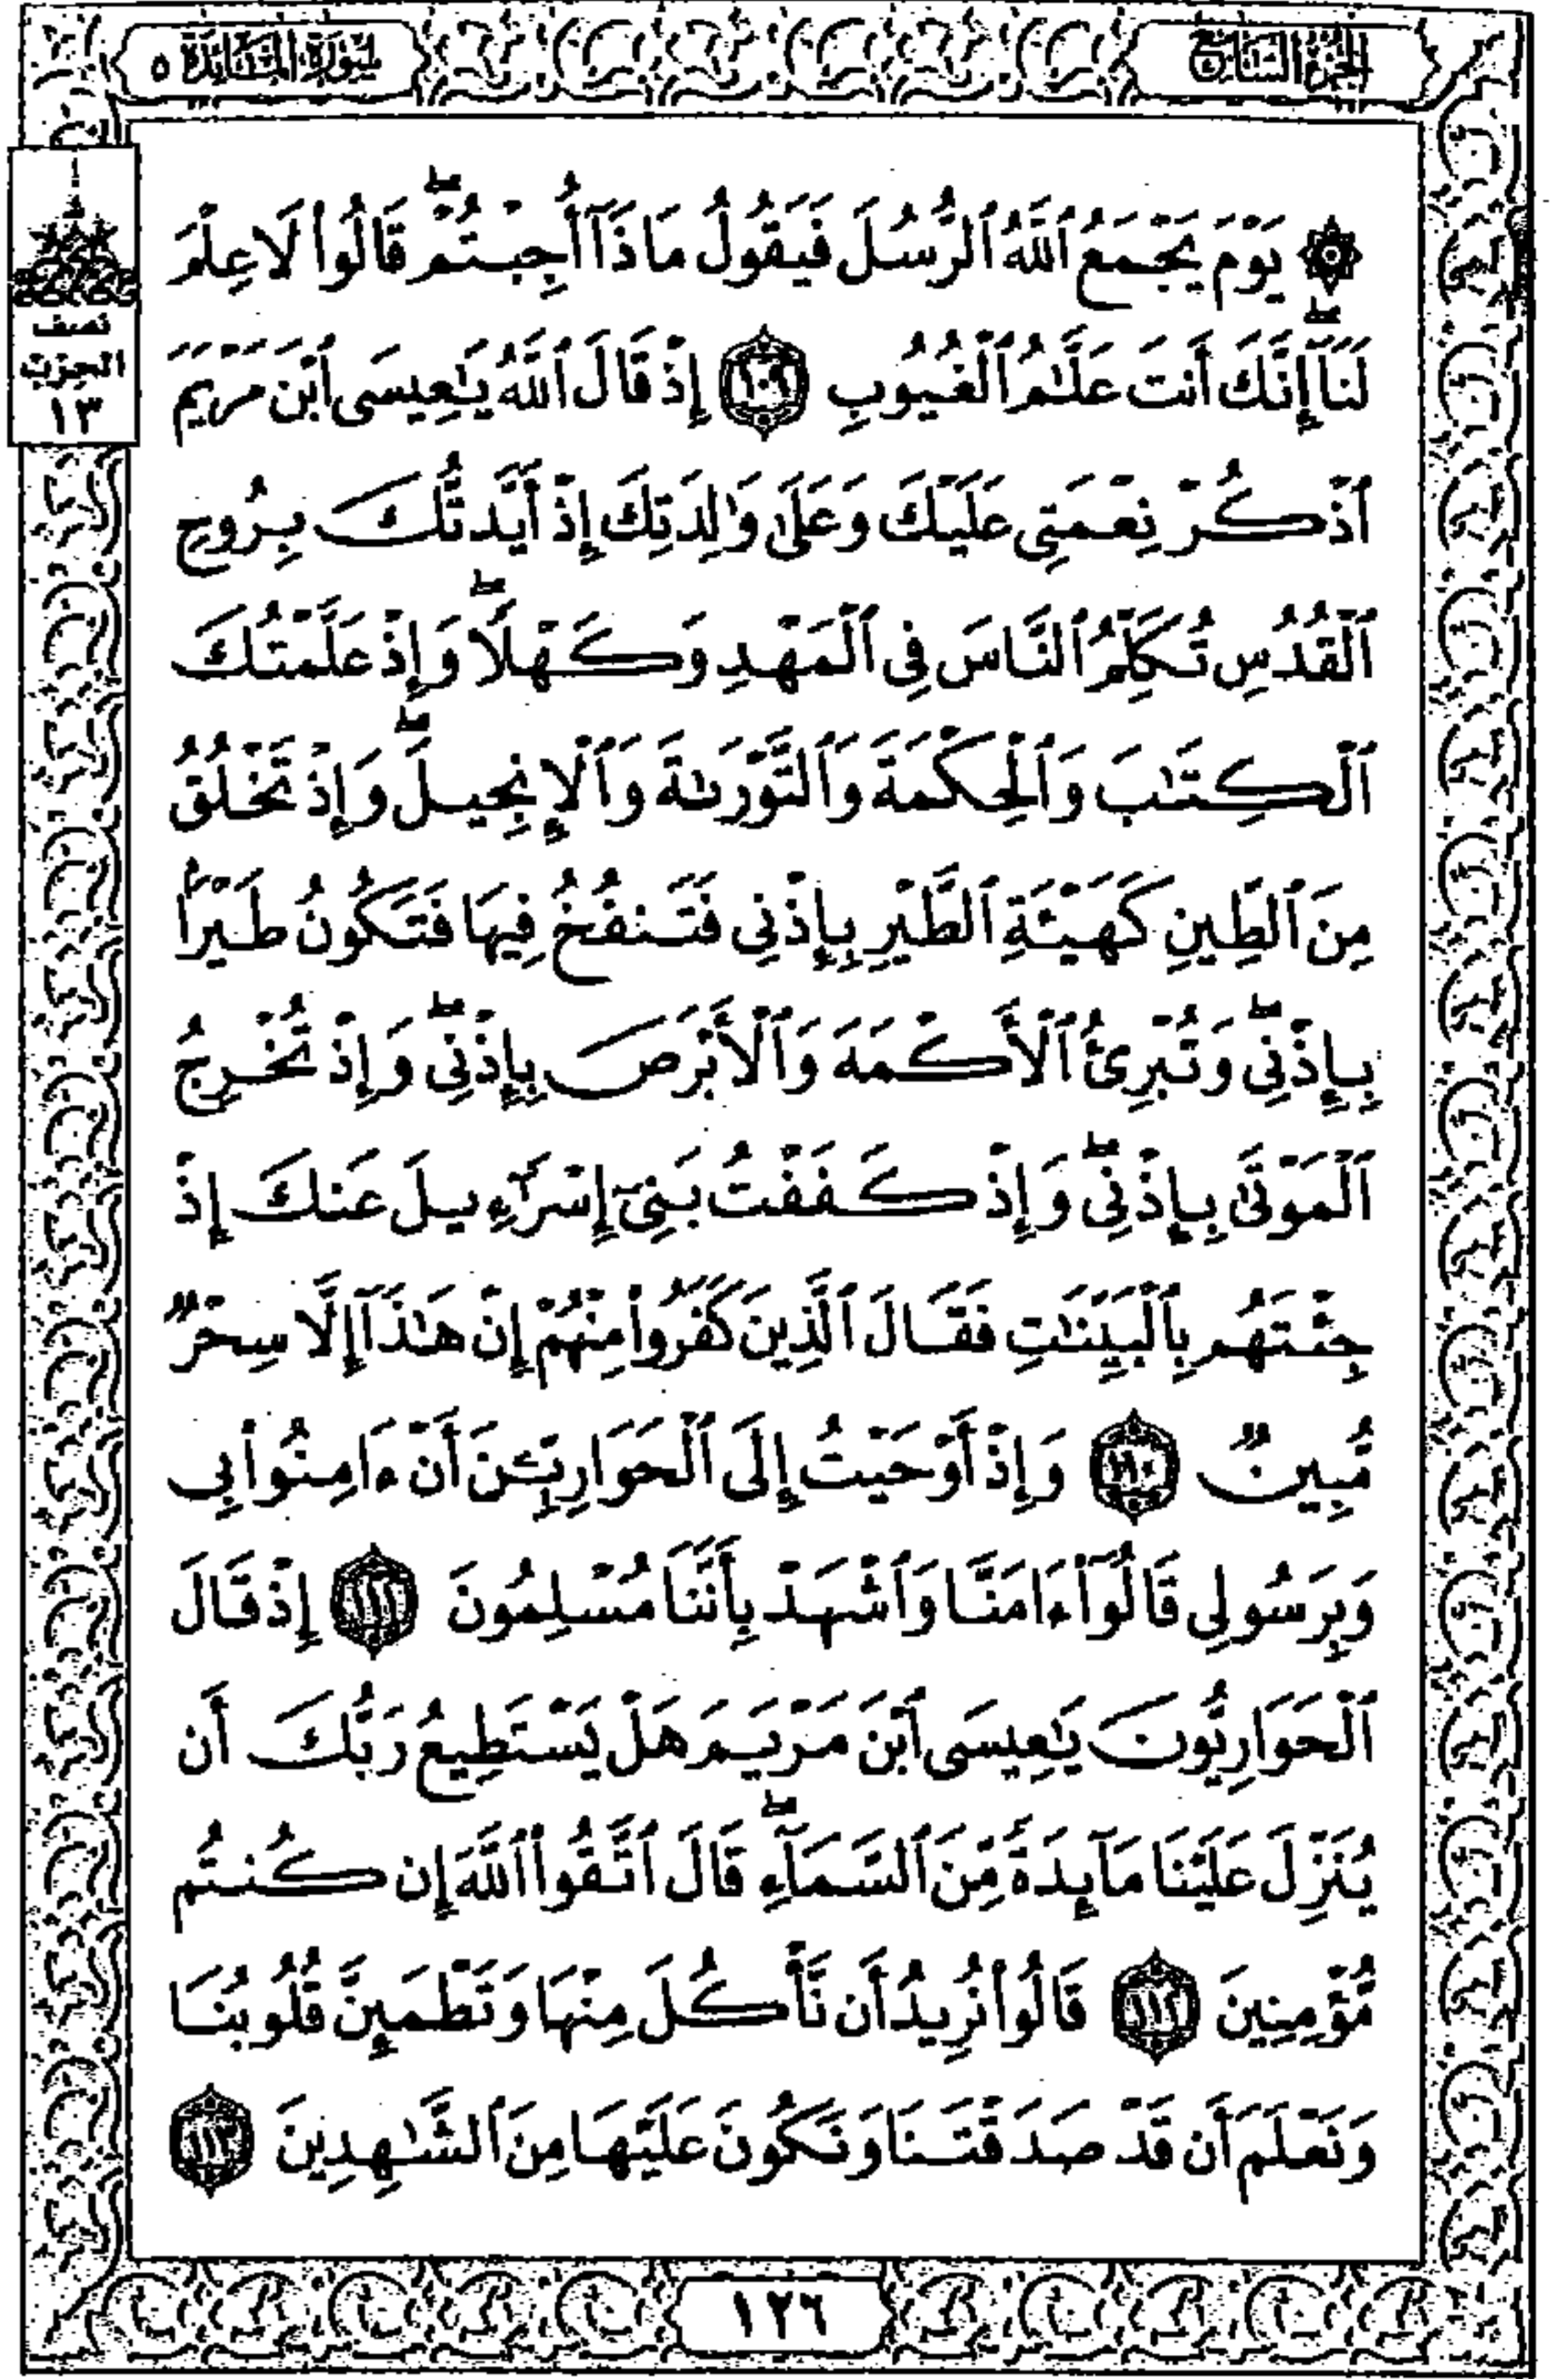 الجزء السابع
سورة المائدة ٥
نصف
الحزب
١٣
۞ يَوْمَ يَجْمَعُ ٱللَّهُ ٱلرُّسُلَ فَيَقُولُ مَاذَآ أُجِبْتُمْۖ قَالُوا۟ لَا عِلْمَ
لَنَآۖ إِنَّكَ أَنتَ عَلَّٰمُ ٱلْغُيُوبِ ١٠٩ إِذْ قَالَ ٱللَّهُ يَٰعِيسَى ٱبْنَ مَرْيَمَ
ٱذْكُرْ نِعْمَتِى عَلَيْكَ وَعَلَىٰ وَٰلِدَتِكَ إِذْ أَيَّدتُّكَ بِرُوحِ
ٱلْقُدُسِ تُكَلِّمُ ٱلنَّاسَ فِى ٱلْمَهْدِ وَكَهْلًاۖ وَإِذْ عَلَّمْتُكَ
ٱلْكِتَٰبَ وَٱلْحِكْمَةَ وَٱلتَّوْرَىٰةَ وَٱلْإِنجِيلَۖ وَإِذْ تَخْلُقُ
مِنَ ٱلطِّينِ كَهَيْـَٔةِ ٱلطَّيْرِ بِإِذْنِى فَتَنفُخُ فِيهَا فَتَكُونُ طَيْرًۢا
بِإِذْنِىۖ وَتُبْرِئُ ٱلْأَكْمَهَ وَٱلْأَبْرَصَ بِإِذْنِىۖ وَإِذْ تُخْرِجُ
ٱلْمَوْتَىٰ بِإِذْنِىۖ وَإِذْ كَفَفْتُ بَنِىٓ إِسْرَٰٓءِيلَ عَنكَ إِذْ
جِئْتَهُم بِٱلْبَيِّنَٰتِ فَقَالَ ٱلَّذِينَ كَفَرُوا۟ مِنْهُمْ إِنْ هَٰذَآ إِلَّا سِحْرٌ
مُّبِينٌ ١١٠ وَإِذْ أَوْحَيْتُ إِلَى ٱلْحَوَارِيِّـۧنَ أَنْ ءَامِنُوا۟ بِى
وَبِرَسُولِى قَالُوٓا۟ ءَامَنَّا وَٱشْهَدْ بِأَنَّنَا مُسْلِمُونَ ١١١ إِذْ قَالَ
ٱلْحَوَارِيُّونَ يَٰعِيسَى ٱبْنَ مَرْيَمَ هَلْ يَسْتَطِيعُ رَبُّكَ أَن
يُنَزِّلَ عَلَيْنَا مَآئِدَةً مِّنَ ٱلسَّمَآءِۖ قَالَ ٱتَّقُوا۟ ٱللَّهَ إِن كُنتُم
مُّؤْمِنِينَ ١١٢ قَالُوا۟ نُرِيدُ أَن نَّأْكُلَ مِنْهَا وَتَطْمَئِنَّ قُلُوبُنَا
وَنَعْلَمَ أَن قَدْ صَدَقْتَنَا وَنَكُونَ عَلَيْهَا مِنَ ٱلشَّٰهِدِينَ ١١٣
١٢٦